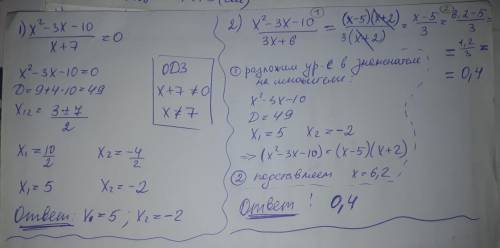 1) x²-3x-10 / x+7 = 0
x²-3x-10=0
D=9+4·10=49
x₁₂ = 3±7 / 2
x₁ = 10/2 x₂ = -4/2
x₁ = 5 x₂ = -2
Ответ: x₁ = 5; x₂ = -2
ОДЗ
x+7 ≠ 0
x ≠ 7
2) x²-3x-10 ① / 3x+6 = (x-5)(x+2) / 3(x+2) = x-5 / 3 = ② 6,2-5 / 3
= 1,2 / 3 =
= 0,4
① разложим ур-е в знаменателе
на множители:
x²-3x-10
D = 49
x₁ = 5 x₂ = -2
=> (x²-3x-10) = (x-5)(x+2)
② подставляем x = 6,2
Ответ: 0,4